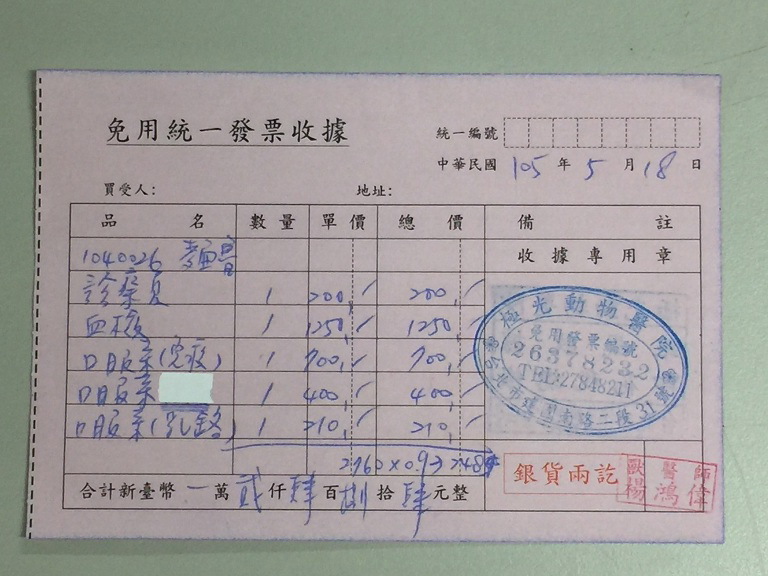 免用統一發票收據
統一編號
中華民國 105 年 5 月 18 日
買受人： 地址：
品名 數量 單價 總價 備註
收據專用章
1040026
診療費 1 200 200
血檢 1 1250 1250
口服藥(免疫) 1 700 700
口服藥 1 400 400
口服藥(乳鉻) 1 210 210
2760×0.9
合計新臺幣 一萬貳仟肆百捌拾肆元整
極光動物醫院
免用發票編號
26378232
TEL:27848211
台北市建國南路二段31號
銀貨兩訖
獸醫師
楊鴻偉